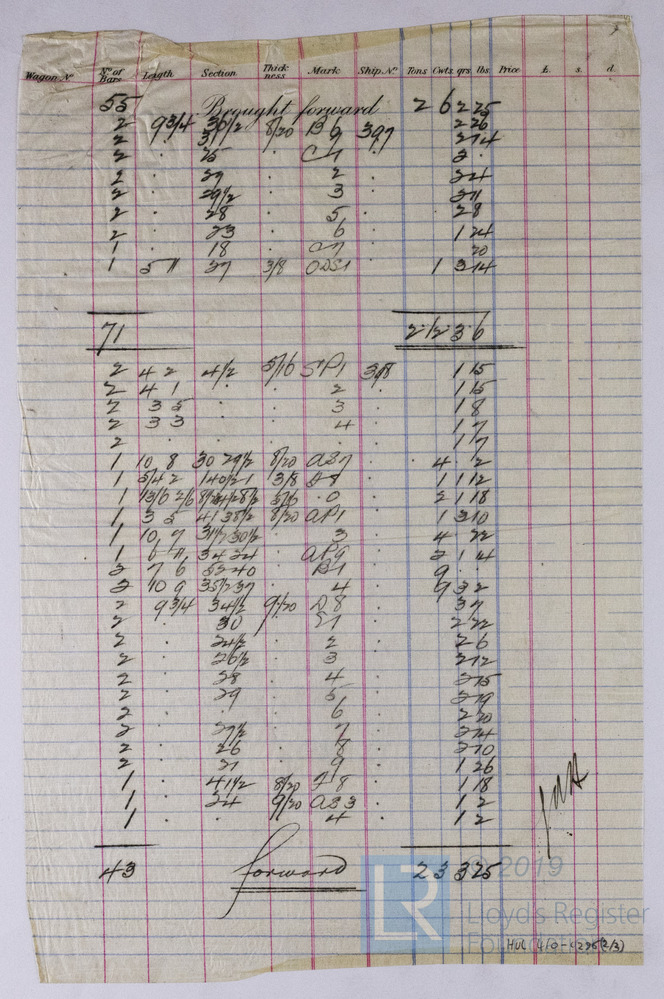 Wagon No No of Bars Length Section Thickness Mark Ship No Tons Cwts qrs lbs Price £. s. d.
55 Brought forward 2 6 2 25
2 9 3/4 30 1/2 8/20 B6 397 2 26
2 · 31 · 9 · 2 14
2 · 25 · C1 · 2 ·
2 · 29 · 2 · 2 24
2 · 29 1/2 · 3 · 2 11
2 · 28 · 5 · 2 8
2 · 23 · 6 · 1 24
1 · 18 · C7 · 20
1 5 11 27 3/8 ODS1 · 1 3 14
71 2 12 3 6
2 4 2 4 1/2 5/16 SP1 398 1 15
2 4 1 · · 2 · 1 15
2 3 5 · · 3 · 1 8
2 3 3 · · 4 · 1 7
2 · · · · · 1 7
1 10 8 30 29 1/2 8/20 AS7 · 4 · 2
1 5/4 2 3/8 D8 · 1 1 12
1 5/16 · 0 · 2 1 18
1 3 5 41 38 1/2 8/20 AP1 · 1 3 10
1 10 7 31 1/2 30 1/2 · 3 · 4 · 22
1 6 11 34 24 · AP9 · 2 1 4
2 7 6 52 40 · B1 · 9 · ·
2 10 9 35 1/2 37 · 4 · 9 3 2
2 9 3/4 34 1/2 9/20 D8 · 3 7
2 · 30 · E1 · 2 22
2 · 24 1/2 · 2 · 2 6
2 · 26 1/2 · 3 · 2 12
2 · 28 · 4 · 2 15
2 · 29 · 5 · 2 19
2 · · · 6 · 2 20
2 · 27 1/2 · 7 · 2 14
2 · 26 · 8 · 2 10
2 · 21 · 9 · 1 26
1 · 41 1/2 8/20 F8 · 1 18
1 · 24 9/20 AS3 · 1 2
1 · · · 4 · 1 2
43 forward 2 3 3 25
LR © 2019
Lloyd's Register
Foundation
HUL 410-4296(2/3)